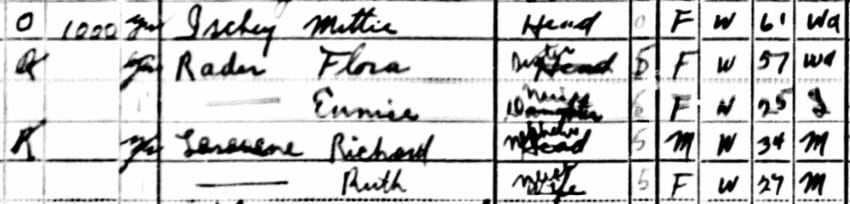 O 1000 yes Ischey Mittie Head 0 F W 61 Wd
R yes Rader Flora Sister Head 5 F W 57 Wd
— Eunice Niece Daughter 6 F W 25 S
R yes Richard Nephew Head 5 M W 34 M
— Ruth Niece Wife 5 F W 27 M